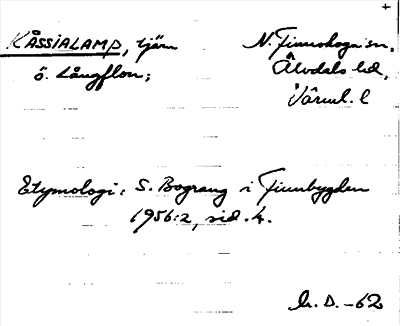 KÅSSIALAMP, tjärn
ö. Långflon;
N. Finnskoga sn,
Älvdals hd,
Värml. l
Etymologi: S. Bograng i Finnbygden
1956:2, sid. 4.
D. -62